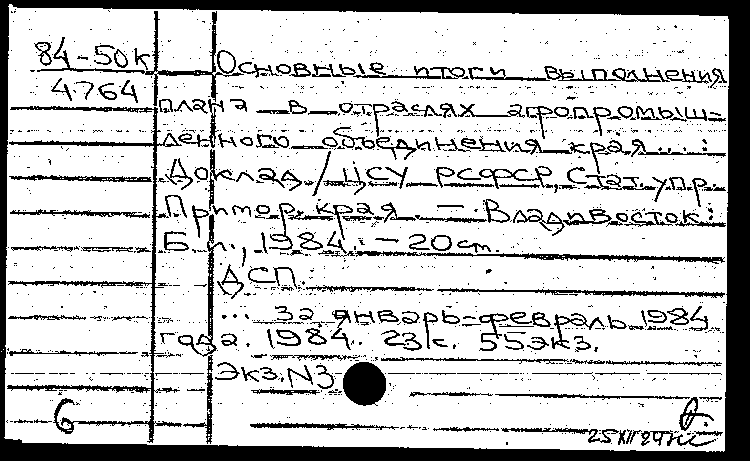 84-50к Основные итоги выполнения
4764 плана в отраслях агропромыш-
ленного объединения края...:
Доклад / ЦСУ РСФСР, Стат. упр.
Примор. края. — Владивосток:
Б.и., 1984. — 20 см.
ДСП.
... за январь-февраль 1984
года. 1984. 23 с. 55 экз.
Экз. N3
6
25 XII 84